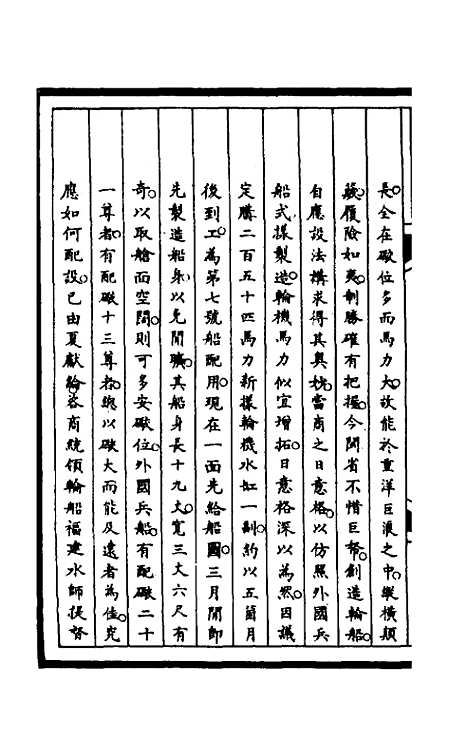 長全在礮位多而馬力大故能於重洋巨浪之中縱橫顛
簸履險如夷制勝確有把握今閩省不惜巨帑創造輪船
自應設法講求得其奧妙當商之日意格以仿照外國兵
船式樣製造輪機馬力似宜增拓日意格深以為然因議
定購二百五十匹馬力新樣輪機水缸一副約以五箇月
後到工為第七號船配用現在一面先給船圖三月間即
先製造船身以免閒曠其船身長十九丈寬三丈六尺有
奇以取艙面空闊則可多安礮位外國兵船有配礮二十
一尊者有配礮十三尊者總以礮大而能及遠者為佳究
應如何配設已由夏獻綸咨商統領輪船福建水師提督